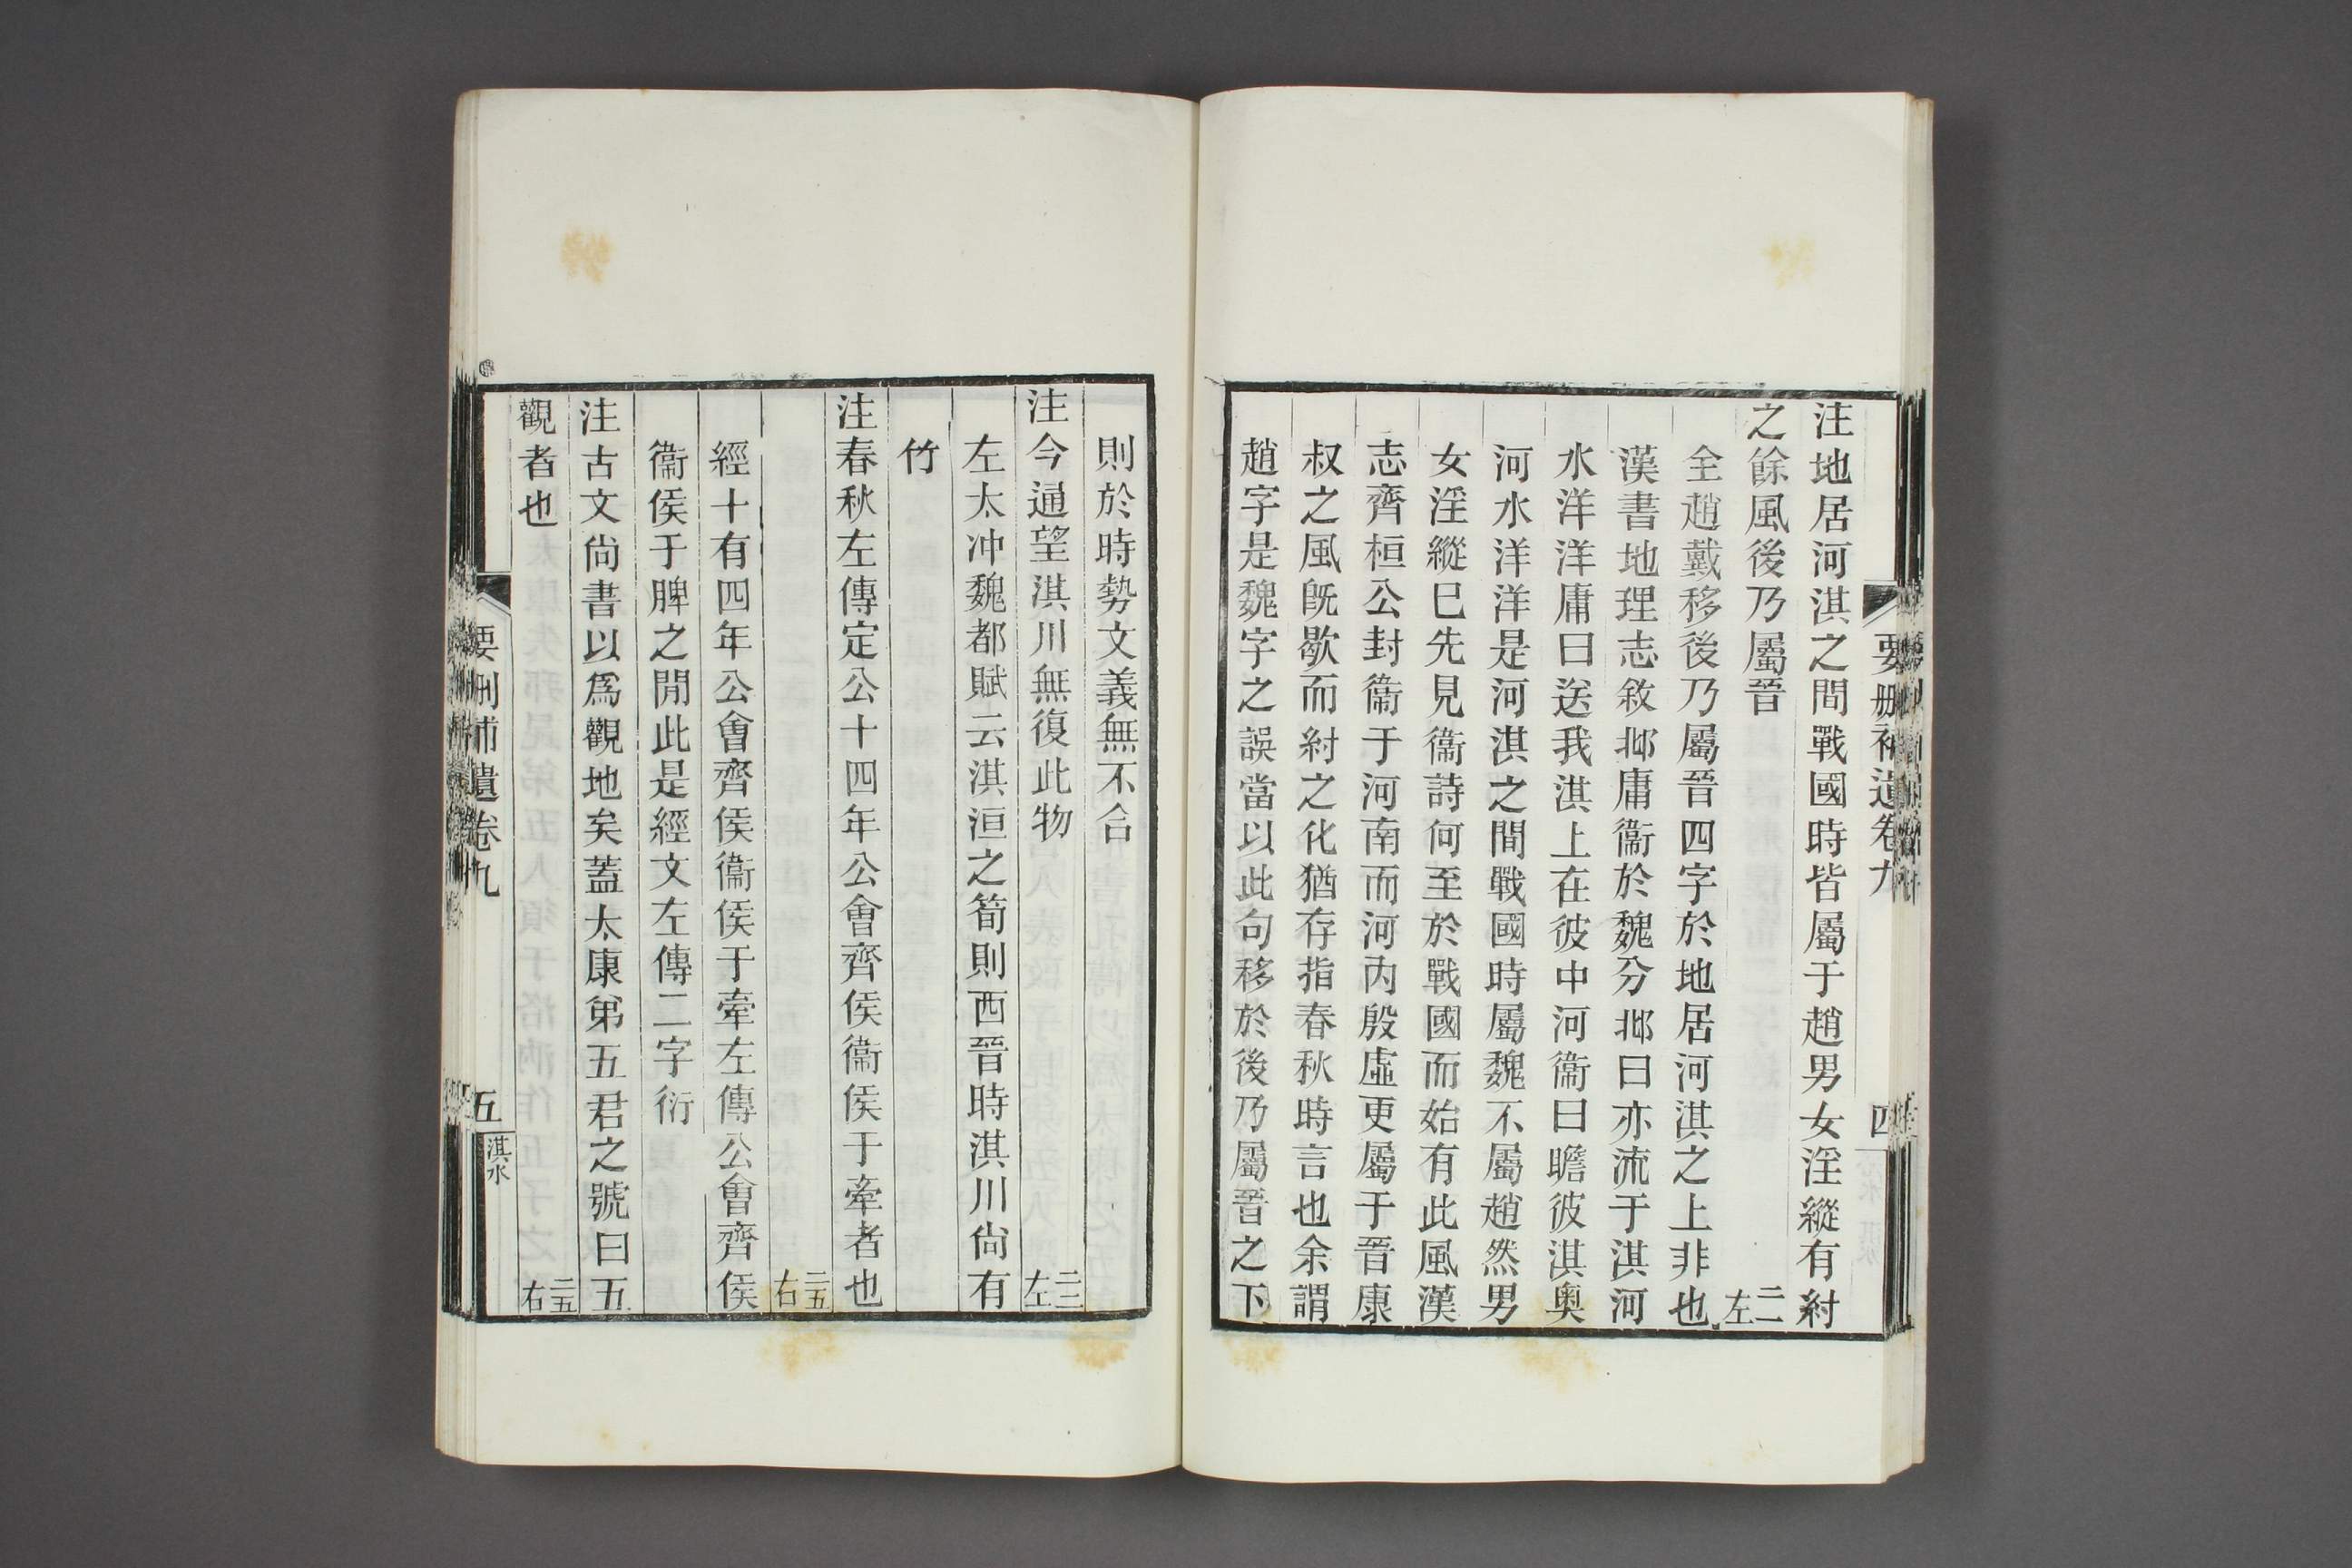 要刪補遺卷九
四
注地居河淇之間戰國時皆屬于趙男女淫縱有紂
之餘風後乃屬晉
二一左
全趙戴移後乃屬晉四字於地居河淇之上非也
漢書地理志敘邶庸衞於魏分邶曰亦流于淇河
水洋洋庸曰送我淇上在彼中河衞曰瞻彼淇奧
河水洋洋是河淇之間戰國時屬魏不屬趙然男
女淫縱巳先見衞詩何至於戰國而始有此風漢
志齊桓公封衞于河南而河內殷虛更屬于晉康
叔之風旣歇而紂之化猶存指春秋時言也余謂
趙字是魏字之誤當以此句移於後乃屬晉之下
則於時勢文義無不合
注今通望淇川無復此物
二三左
左太冲魏都賦云淇洹之筍則西晉時淇川尙有
竹
注春秋左傳定公十四年公會齊侯衞侯于牽者也
二五右
經十有四年公會齊侯衞侯于牽左傳公會齊侯
衞侯于脾之閒此是經文左傳二字衍
注古文尙書以爲觀地矣蓋太康第五君之號曰五
觀者也
二五右
要刪補遺卷九
五
淇水